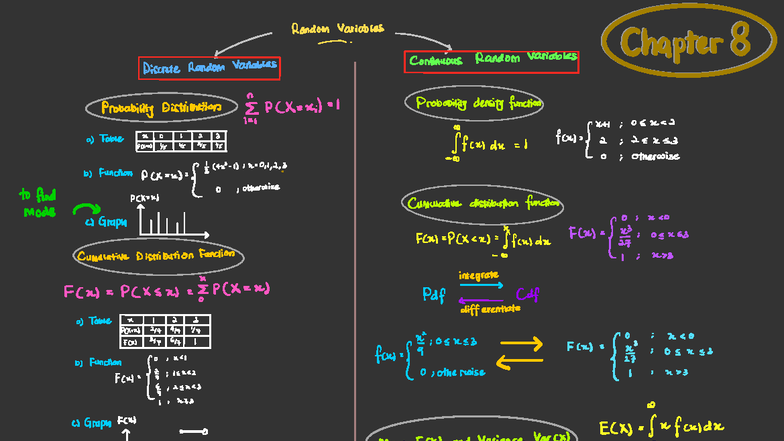 Random Variables
Chapter 8
Discrete Random Variables
Probability Distribution
n Σ i=1 P(X=xᵢ) = 1
a) Table
x 0 1 2 3
P(X=x)
b) Function P(X=x) = { (4x²-1) ; x=0,1,2,3
0 , otherwise
to find mode
P(X=x)
c) Graph
x
Cumulative Distribution Function
F(x) = P(X≤x) = x Σ 0 P(X=x)
a) Table
x 1 2 3
P(X=x)
F(x) 1
b) Function
F(x) = { 0 , x<1
; 1≤x<2
; 2≤x<3
1 ; x≥3
c) Graph F(x)
Continuous Random Variables
Probability density function
∞ ∫ -∞ f(x) dx = 1
f(x) = { x+1 ; 0≤x<2
2 ; 2≤x≤3
0 ; otherwise
Cumulative distribution function
F(x) = P(X<x) = x ∫ -∞ f(x) dx
F(x) = { 0 ; x<0
x³/27 ; 0≤x≤3
1 ; x>3
integrate
Pdf Cdf
differentiate
f(x) = { x²/9 ; 0≤x≤3
0 ; otherwise
F(x) = { 0 ; x<0
x³/27 ; 0≤x≤3
1 ; x>3
E(X) and Variance Var(X)
E(X) = ∞ ∫ x f(x) dx